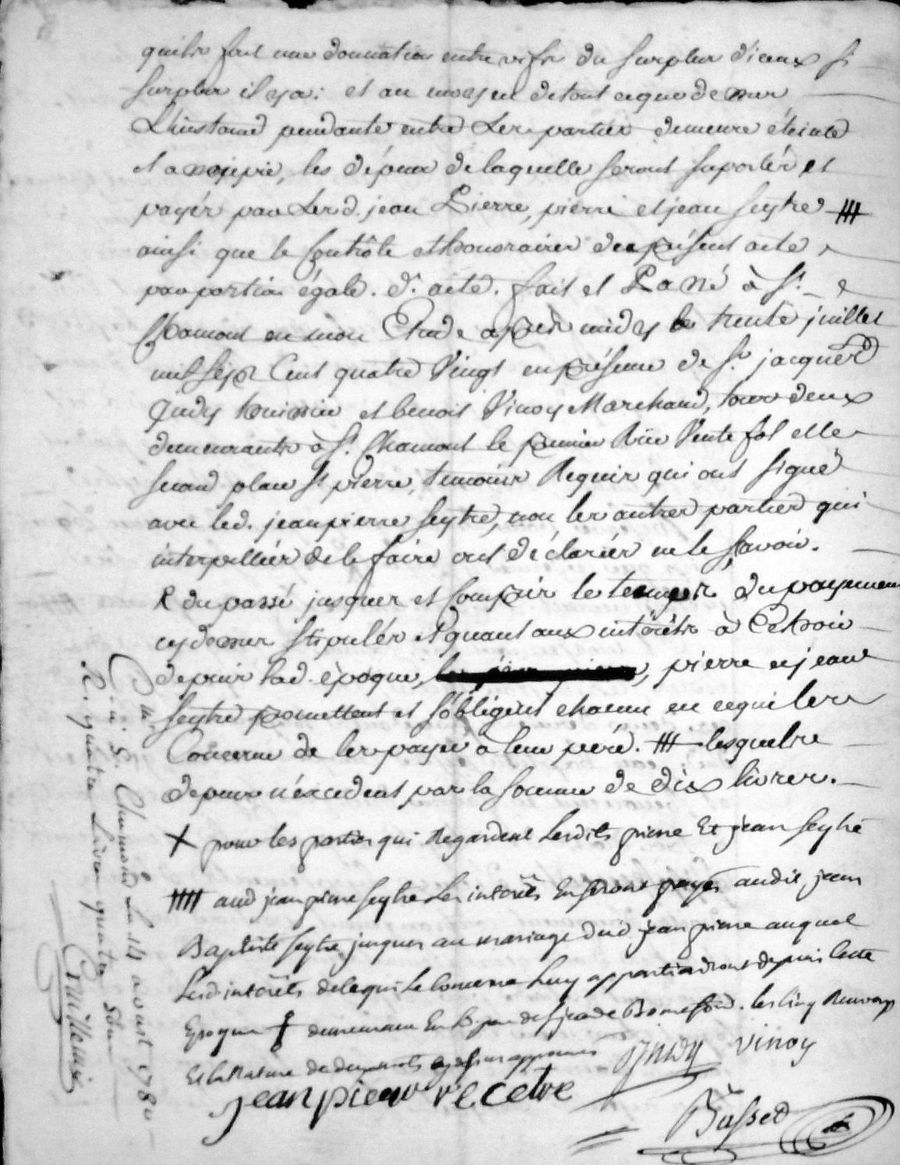 quils font une donnation entre vifs du surplus d'iceux si
surplus il y a; et au moyen de tout ce que dessus
L'instance pendante entre Les parties demeure éteinte
et assoppie, les dépens de laquelle seront suportés et
payés par Les d. jean Pierre, pierre et jean seytre ///
ainsi que le Controle et honoraires du présent acte
par portion égale. d. acte. fait et Passé à St.
Chamont en mon Etude après midy le trente juillet
mil sept Cent quatre Vingt en présence de Sr. jacques
Gidy et benoit Vinoy Marchand, tous deux
demeurants à St. Chamont le premier Rüe et le
second place St. pierre, temoins Requis qui ont signé
avec led. jean pierre seytre, non les autres parties qui
interpellées de le faire ont déclarées ne le savoir.
du passé jusques et Compris le temps du payement
cy dessus stipulés et quant aux intérêts à Echoir
depuis lad. époque, pierre et jean
seytre promettent et s'obligent chacun en ce qui les
Concerne de les payer a leur père. /// lesquels
depens n'excedent pas la somme de dix livres.
X pour les parties qui Regardent lesdits pierre Et jean seytre
//// aud jean pierre seytre Les intérêts En seront payés audit jean
Baptiste seytre jusques au mariage dud jean pierre auquel
Lesd intérêts de ce qui Le concerne Luy appartiendront depuis cette
Epoque demeurant En
Et la Rature de cy dessus approuvés
Gidy vinoy
jean pierre cetre
Basset
Cllé à St. Chamond le 14 aoust 1780
R. quatre Livres quatre sous